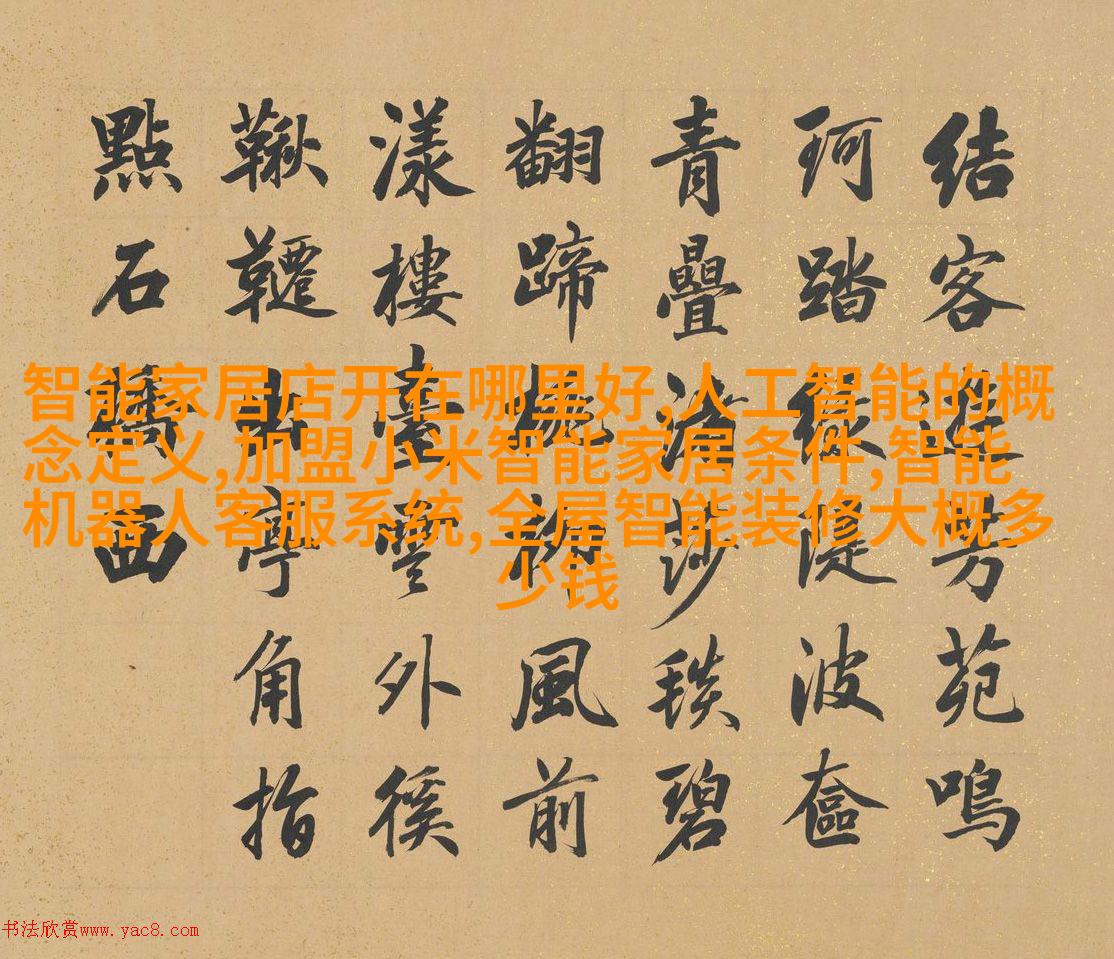 結客遊芳苑鳴
珂踏綠隄波奩
青疊渚莎毯碧
翻蹄風前
漾樓臺雲外徯
鞦韆出亭角指
點石橋西
智能家居店开在哪里好,人工智能的概
念定义,加盟小米智能家居条件,智能
机器人客服系统,全屋智能装修大概多
少钱
书法欣赏www.yac8.com